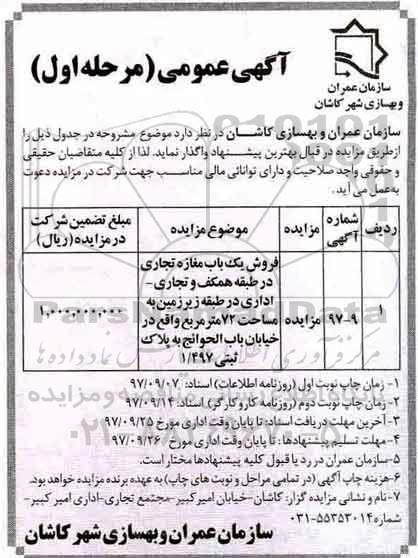 آگهی عمومی (مرحله اول)
سازمان عمران
وبهسازی شهر کاشان
سازمان عمران و بهسازی کاشــان در نظر دارد موضوع مشروحه در جدول ذیل را
ازطریق مزایده در قبال بهترین پیشــنهاد واگذار نماید. لذا از کلیه متقاضیان حقیقی
و حقوقی واجد صلاحیت و دارای توانائی مالی مناسب جهت شرکت در مزایده دعوت
به عمل می آید.
ردیف
شماره آگهی
مزایده
موضوع مزایده
مبلغ تضمین شرکت
در مزایده (ریال)
۱
۹۷-۹
مزایده
فروش یک باب مغازه تجاری
در طبقه همکف و تجاری -
اداری در طبقه زیرزمین به
مساحت ۷۲ متر مربع واقع در
خیابان باب الحوائج به پلاک
ثبتی ۱/۴۹۷
۱,۰۰۰,۰۰۰,۰۰۰
۱- زمان چاپ نوبت اول (روزنامه اطلاعات) اسناد: ۹۷/۰۹/۰۷
۲- زمان چاپ نوبت دوم (روزنامه کار و کارگر) اسناد: ۹۷/۰۹/۱۴
۳- آخرین مهلت دریافت اسناد: تا پایان وقت اداری مورخ ۹۷/۰۹/۲۵
۴- مهلت تسلیم پیشنهادها: تا پایان وقت اداری مورخ ۹۷/۰۹/۲۶
۵- سازمان عمران در رد یا قبول کلیه پیشنهادها مختار است.
۶- هزینه چاپ آگهی (در تمامی مراحل و نوبت های چاپ) به عهده برنده مزایده خواهد بود.
۷- نام و نشانی مزایده گزار: کاشان-خیابان امیرکبیر-مجتمع تجاری-اداری امیر کبیر-
شماره ۵۵۳۵۳۰۱۴-۰۳۱
سازمان عمران وبهسازی شهر کاشان